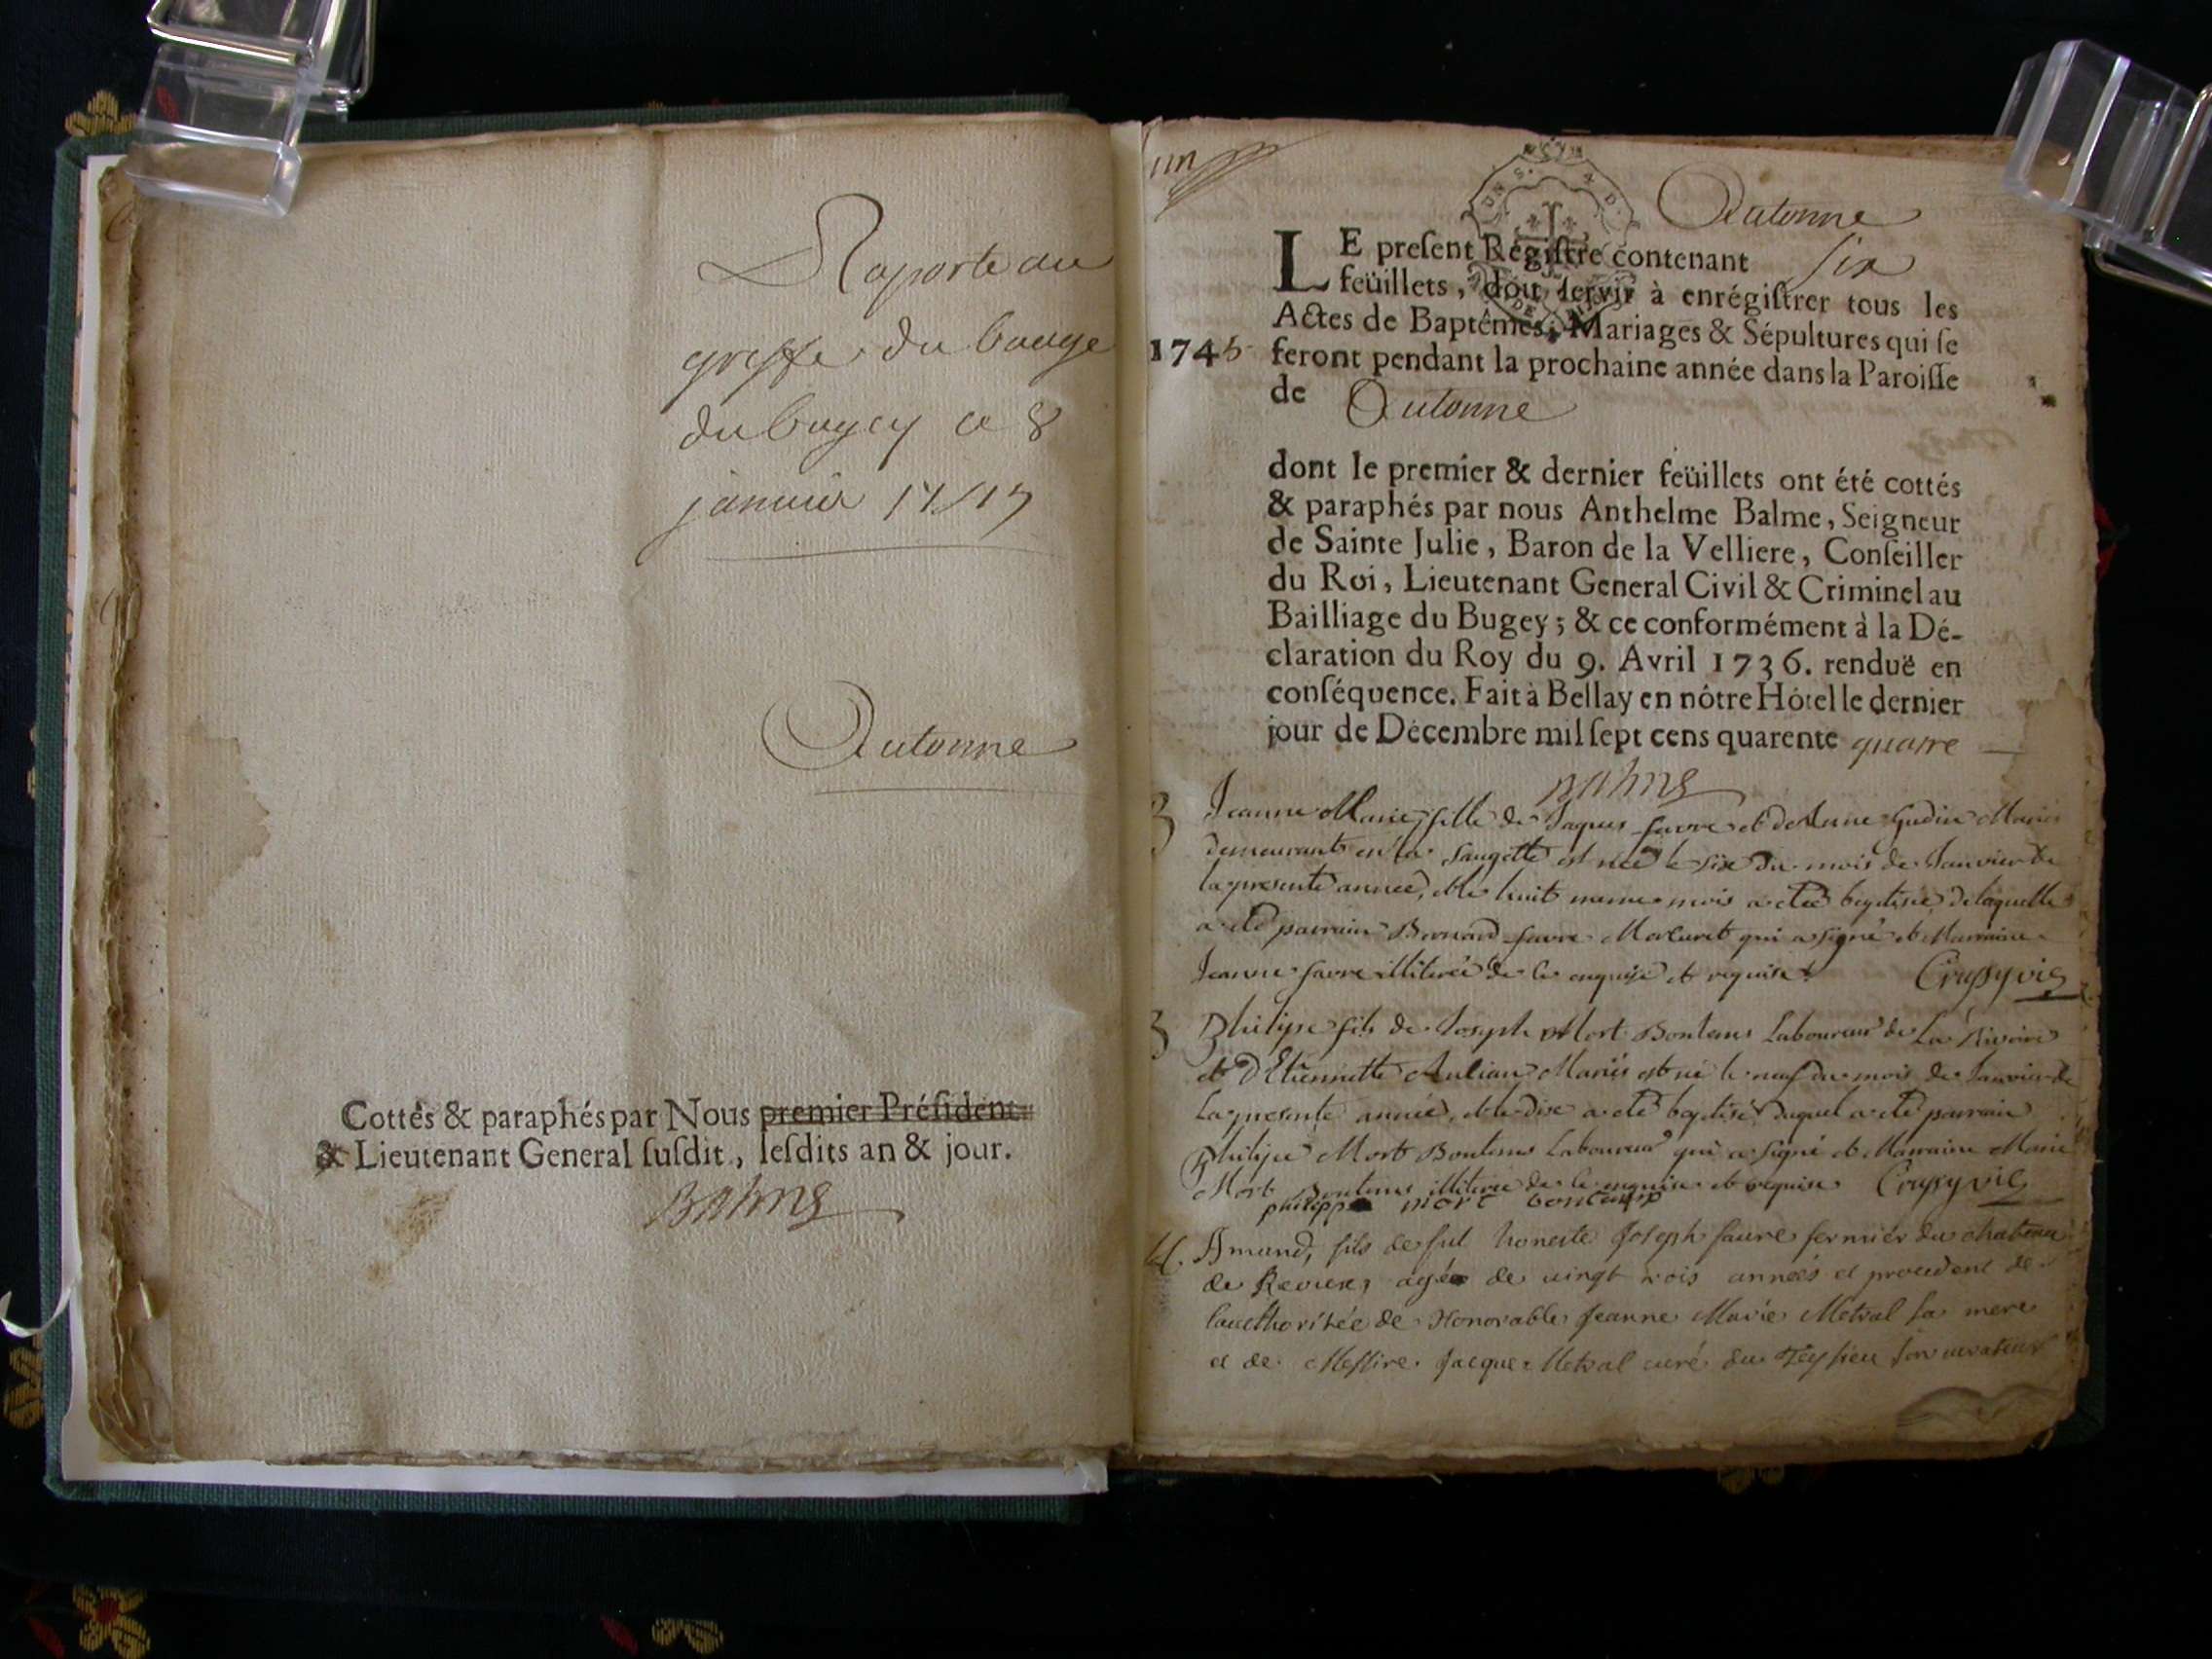 Raporte au
greffe du
du bugey ce 8
janvier
Autonne
Cottés & paraphés par Nous premier Président
& Lieutenant General susdit, lesdits an & jour.
Balme
un
Autonne
LE present Régistre contenant six
feüillets, doit servir à enrégistrer tous les
Actes de Baptêmes, Mariages & Sépultures qui se
1745 feront pendant la prochaine année dans la Paroisse
de Autonne
dont le premier & dernier feüillets ont été cottés
& paraphés par nous Anthelme Balme, Seigneur
de Sainte Julie, Baron de la Velliere, Conseiller
du Roi, Lieutenant General Civil & Criminel au
Bailliage du Bugey; & ce conformément à la Dé-
claration du Roy du 9. Avril 1736. renduë en
conséquence. Fait à Bellay en nôtre Hôtel le dernier
jour de Décembre mil sept cens quarente quatre
Balme
B Jeanne Marie fille de Jaques favre et de Maries
demeurants en la est née le six du mois de Janvier de
la presente année, et le huit meme mois a eté baptisée de laquelle
a eté parrain Bernard favre qui a signé et Marraine
Jeanne favre illiterée de ce enquise et requise
B Philipe fils de Joseph Mort Bontems Laboureur de La Rivoire
et D'Etiennette Mariés est né le neuf du mois de Janvier de
La presente année, et le dix a eté baptisé duquel a eté parrain
Philipe Mort Bontems Laboureur qui a signé et Marraine Marie
Mort Bontems illiterée de ce enquise et requise
philippe mort bontemp
M. Amand, fils de fut honeste Joseph favre fermiér du chateau
de agée de vingt trois années et procedent de
lauthoritée de Honorable Jeanne Marie Metral sa mere
et de Messire Jacque Metral curé du son curateur